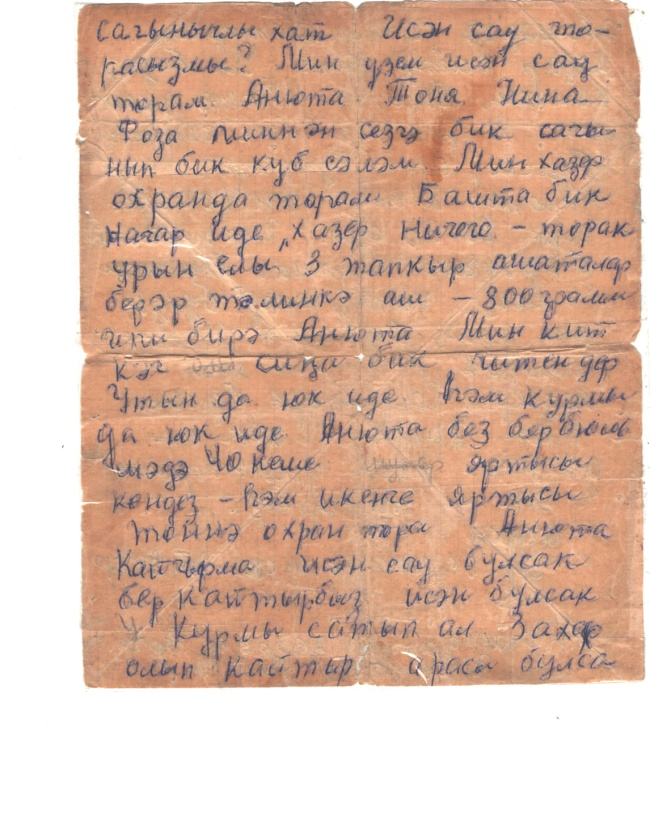 сагынычлы хат Исән сау то-
расызмы? Мин үзем исән сау
торам Анюта Тоня Нина
Роза миннән сезгә бик сагы-
нып бик куб сәләм Мин хазер
охранда торам Башта бик
начар иде „хазер ничего - торак
урын елы 3 тапкыр ашаталар
берәр тәлинкә аш - 800 грамм
ипи бирә Анюта Мин кит
кәч сиңа бик читендер
Утын да юк иде һәм курмы
да юк иде Анюта без бер бюль
мәдә 40 кеше яртысы
көндез - һәм икенче яртысы
төннә охран тора Анюта
Кайгырма исән сау булсак
бер кайтырбыз исән булсак
Курмы сатып ал Захар
олып кайтыр араси булса